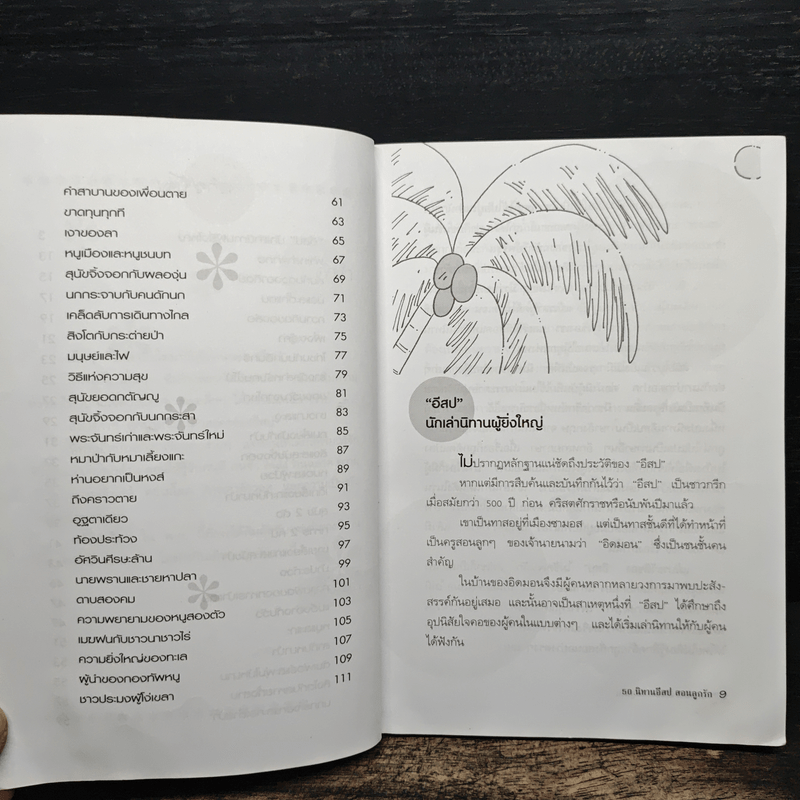 คำสาบานของเพื่อนตาย 61
ขาดทุนทุกที 63
เงาของลา 65
หนูเมืองและหนูชนบท 67
สุนัขจิ้งจอกกับผลองุ่น 69
นกกระจาบกับคนดักนก 71
เคล็ดลับการเดินทางไกล 73
สิงโตกับกระต่ายป่า 75
มนุษย์และไฟ 77
วิธีแห่งความสุข 79
สุนัขยอดกตัญญู 81
สุนัขจิ้งจอกกับนกกระสา 83
พระจันทร์เก่าและพระจันทร์ใหม่ 85
หมาป่ากับหมาเลี้ยงแกะ 87
ห่านอยากเป็นหงส์ 89
ถึงคราวตาย 91
อูฐตาเดียว 93
ท้องประท้วง 95
อัศวินศีรษะล้าน 97
นายพรานและชายหาปลา 99
ดาบสองคม 101
ความพยายามของหนูสองตัว 103
เมฆฝนกับชาวนาชาวไร่ 105
ความยิ่งใหญ่ของทะเล 107
ผู้นำของกองทัพหนู 109
ชาวประมงผู้โง่เขลา 111
"อีสป"
นักเล่านิทานผู้ยิ่งใหญ่
ไม่ปรากฏหลักฐานแน่ชัดถึงประวัติของ "อีสป"
หากแต่มีการสืบค้นและบันทึกกันไว้ว่า "อีสป" เป็นชาวกรีก
เมื่อสมัยกว่า 500 ปี ก่อน คริสตศักราชหรือนับพันปีมาแล้ว
เขาเป็นทาสอยู่ที่เมืองซามอส แต่เป็นทาสชั้นดีที่ได้ทำหน้าที่
เป็นครูสอนลูกๆ ของเจ้านายนามว่า "อิดมอน" ซึ่งเป็นชนชั้นคน
สำคัญ
ในบ้านของอิดมอนจึงมีผู้คนหลากหลายวงการมาพบปะสัง-
สรรค์กันอยู่เสมอ และนั่นอาจเป็นสาเหตุหนึ่งที่ "อีสป" ได้ศึกษาถึง
อุปนิสัยใจคอของผู้คนในแบบต่างๆ และได้เริ่มเล่านิทานให้กับผู้คน
ได้ฟังกัน
๕๐ นิทานอีสป สอนลูกรัก 9